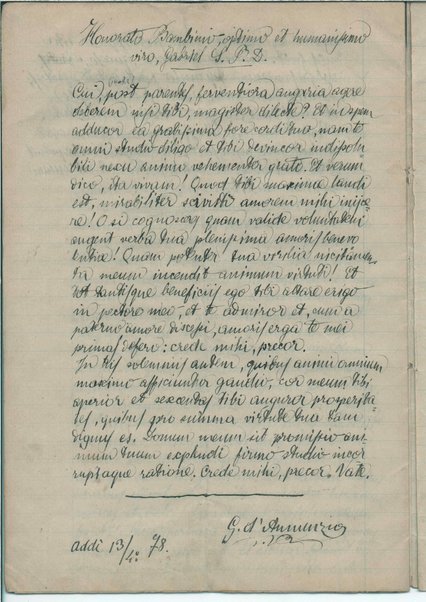 Honorato Bambini, optimo et humanissimo
viro, Gabriel S. P. D.
Cui, post parentes, ferventiora auguria agere
discerem nisi tibi, magister dilecte? Et in spem
adducor ea gratissima fore cordi tuo, nam te
omni studio diligo et tibi devincior indissolu
bili nexu animi vehementer grato. Et verum
dico, ita vivam! Quod tibi maxime laudi
est, mirabiliter scivisti amorem mihi injice
re! O si cognosceres quam valide voluntatem
augent verba tua plenissima amoris benevo
lentiae! Quam potenter tua virilia incitamen
ta meum incendit animum virtuti! Et
tot tantisque beneficiis ego tibi altare erigo
in pectore meo, et te admiror et, cum a
paterno amore discessi, amoris erga te mei
primas defero: crede mihi, precor.
In his solemnis autem, quibus animi omnium
maximo afficiuntur gaudio, cor meum tibi
aperior et sexcentas tibi auguror prosperita
tes, quibus pro summa virtute tua tam
dignus es. Donum meum sit promissio ani
mum tuum explendi firmo studio incor
ruptaque ratione. Crede mihi, precor. Vale.
G. d'Annunzio
Addì 13/4º 78.